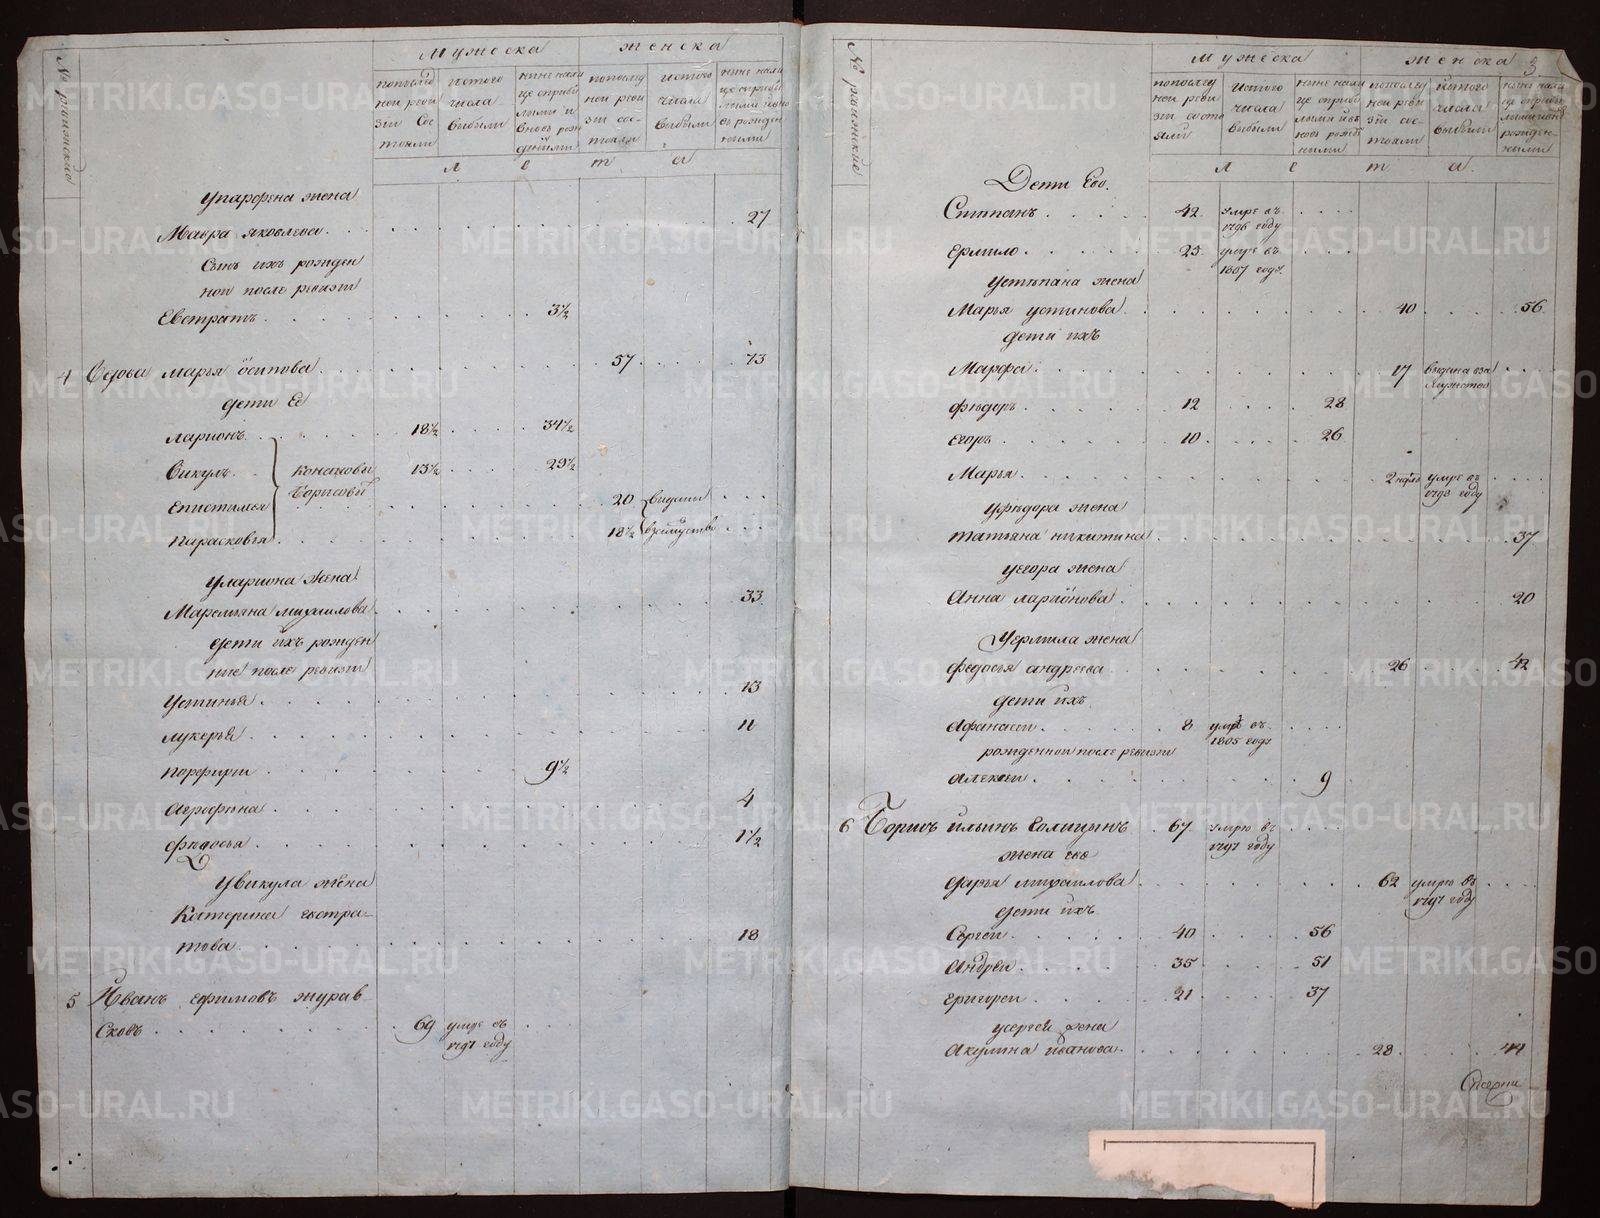 № ряжские
мужеска
женска
попослед
ней реви
зіи Сос
тояли
истого
числа
выбыли
ныне нали
це сприбы
лыми и
вновь рож
денными
попослед
ней реви
зіи сос
тояли
истого
числа
выбыли
ныне нали
це сприбы
лыми и вно
вь рожден
ными
лета
Упарфена жена
Мавра яковлева 27
Сынъ ихъ рожден
ной после ревизіи
Евстратъ 3½
4 Седова марья осипова 57 73
дети Ее
ларионъ 18½ 34½
Викулъ 13½ 29½
Епистимья 20
парасковья 18½
Борисовы
выданы
взамужство
Улариона жена
Маремьяна михаилова 33
дети ихъ рожден
ные после ревизіи
Устинья 13
лукерья 11
порфирей 9½
Аграфена 4
федосья 1½
Увикула жена
Катерина евстра-
това 18
5 Иванъ ефимовъ журав
Сковъ 69 умре въ
1797 году
№ ряжские
3
мужеска
женска
попослед
ней реви
зіи состо
яли
истого
числа
выбыли
ныне нали
це сприбы
лыми и въ
новь рожд
ными
попослед
ней реви
зіи сос
тояли
истого
числа
выбыли
ныне нали
це сприбы
рожден-
ными
лета
Дети Ево.
Степанъ 42 умре въ
1796 году
Ермило 25 умре въ
1807 году
Устепана жена
Марья устинова 40 56
дети ихъ
Марфа 17 выдана вза
мужество
федоръ 12 28
Егоръ 10 26
Марья 2 умре въ
1798 году
Уфедора жена
татьяна никитина 37
Уегора жена
Анна ларионова 20
Уермила жена
федосья андреева 26 42
дети ихъ
Афанасей 8 умре въ
1805 году
рожденной после ревизіи
Алексей 9
6 Борисъ ильинъ Голицынъ 67 умре въ
1797 году
жена ево
дарья михаилова 62 умре въ
1797 году
дети ихъ
Сергей 40 56
Андрей 35 51
григорей 21 37
усергея жена
Акулина иванова 28 44